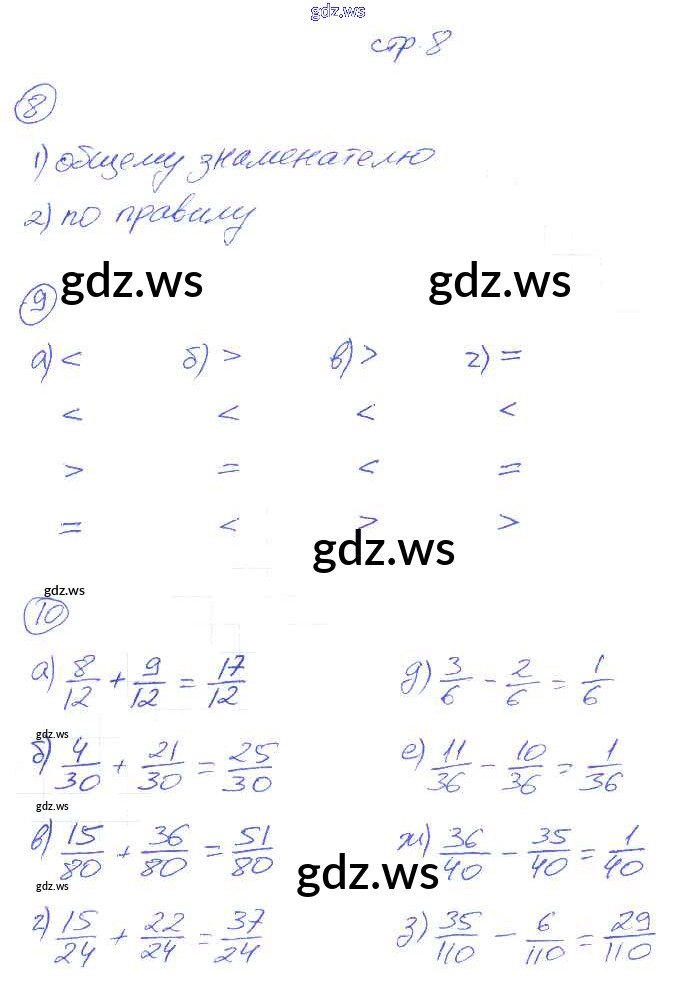 gdz.ws
стр. 8
8
1) общему знаменателю
2) по правилу
gdz.ws gdz.ws
9
а) < б) > в) > г) =
< < < <
> = < =
= < > >
gdz.ws
gdz.ws
10
а) 8/12 + 9/12 = 17/12 д) 3/6 - 2/6 = 1/6
gdz.ws
б) 4/30 + 21/30 = 25/30 е) 11/36 - 10/36 = 1/36
gdz.ws
в) 15/80 + 36/80 = 51/80 ж) 36/40 - 35/40 = 1/40
gdz.ws gdz.ws
г) 15/24 + 22/24 = 37/24 з) 35/110 - 6/110 = 29/110